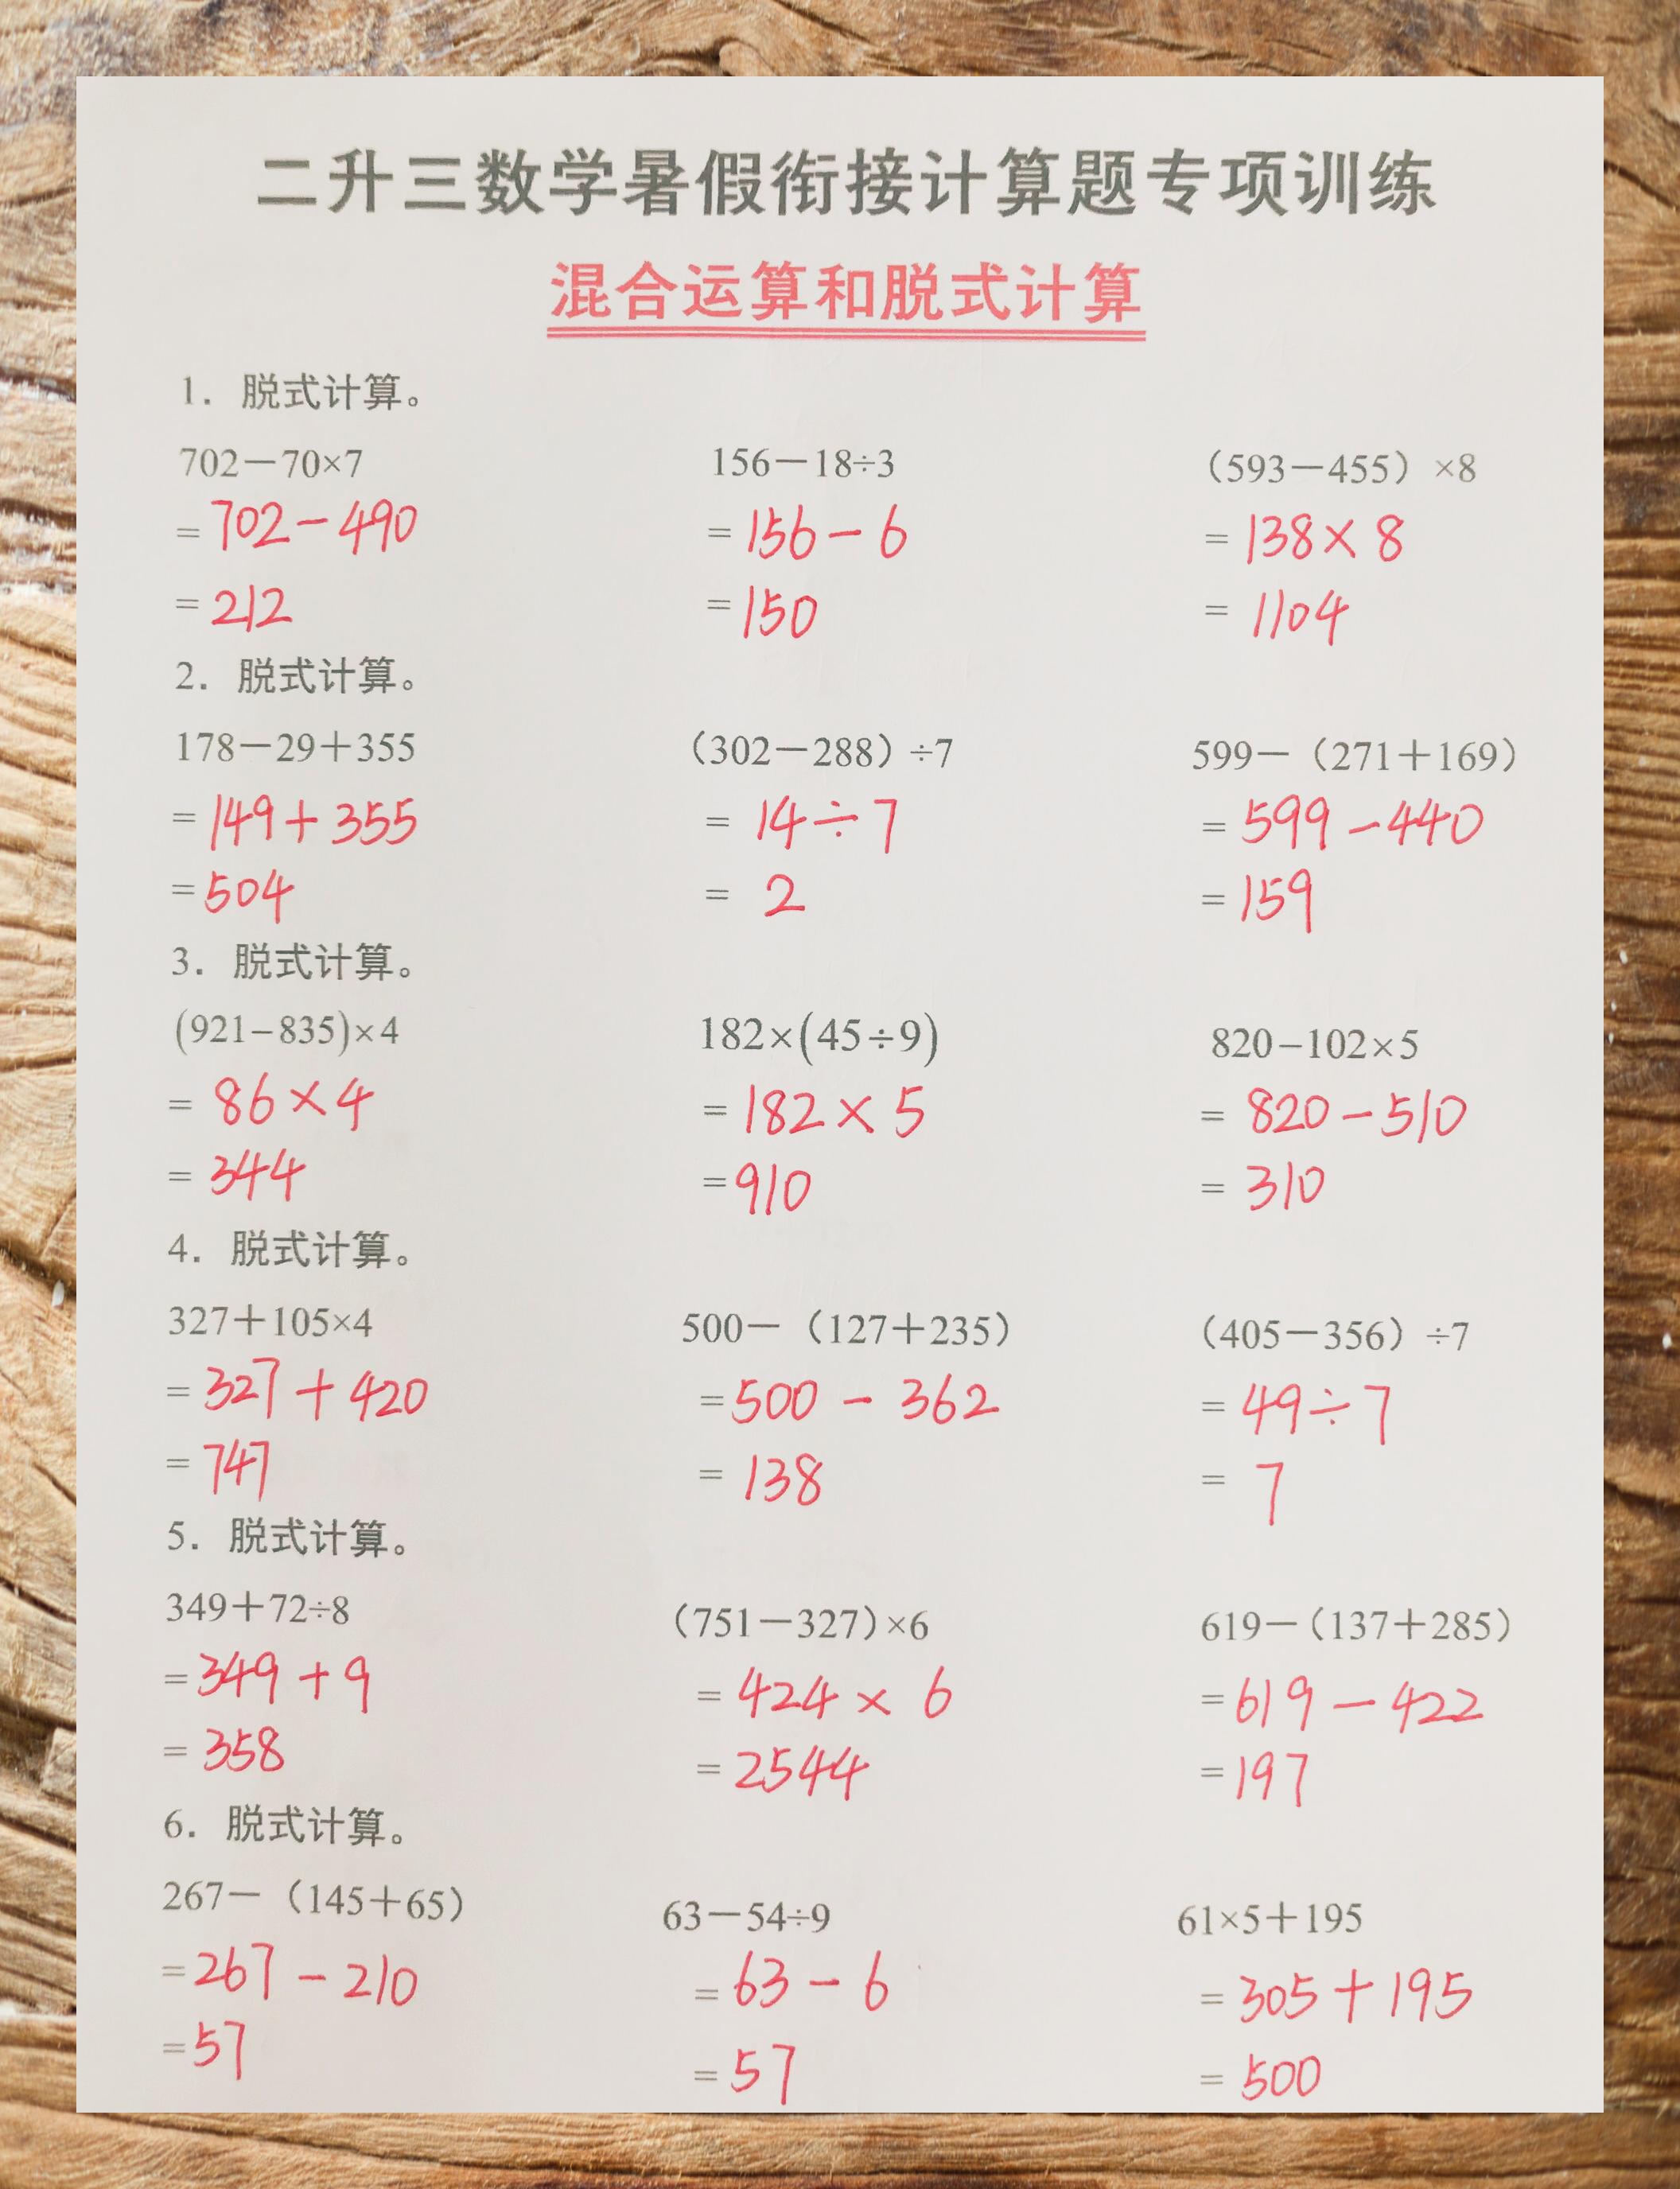 二升三数学暑假衔接计算题专项训练
混合运算和脱式计算
1. 脱式计算。
702－70×7 156－18÷3 （593－455）×8
=702－490 =156－6 =138×8
=212 =150 =1104
2. 脱式计算。
178－29＋355 （302－288）÷7 599－（271＋169）
=149＋355 =14÷7 =599－440
=504 =2 =159
3. 脱式计算。
(921−835)×4 182×(45÷9) 820−102×5
=86×4 =182×5 =820－510
=344 =910 =310
4. 脱式计算。
327＋105×4 500－（127＋235） （405－356）÷7
=327＋420 =500－362 =49÷7
=747 =138 =7
5. 脱式计算。
349＋72÷8 （751－327）×6 619－（137＋285）
=349＋9 =424×6 =619－422
=358 =2544 =197
6. 脱式计算。
267－（145＋65） 63－54÷9 61×5＋195
=267－210 =63－6 =305＋195
=57 =57 =500